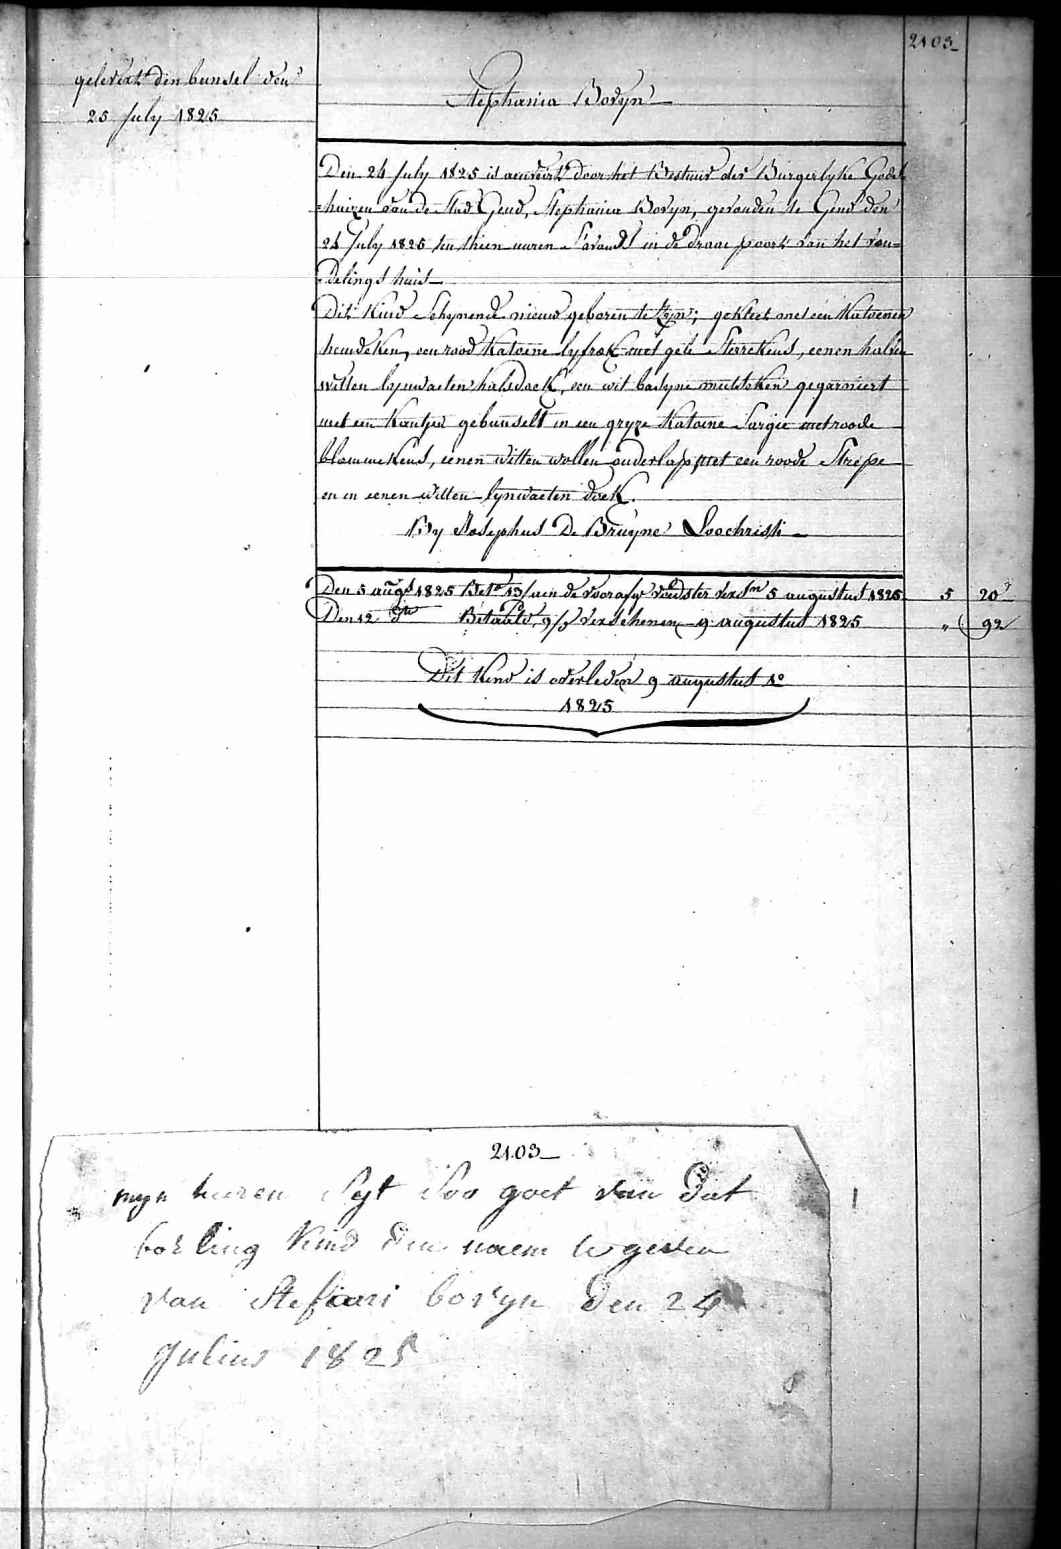 2103
gelevert den bunsel den
25 July 1825
Stephania Bovyn
Den 24 July 1825 is aenveirt door het Bestuur der Burgerlyke Gods
=huizen van de Stad Gend, Stephania Bovyn, gevonden te Gend den
24 July 1825 ten thien uuren S'avonds in de draai poort van het von=
=delings huis
Dit Kind Schynende nieuw geboren te Zyn; gekleet met een Katoenen
hemdeken, een rood Katoene lyfrok met gele Sterrekens, eenen halven
witten lynwaeten halsdoek, een wit mutsken gegarniert
met een Kantjen gebunselt in een gryze Katoene Sargie met roode
blommekens, eenen witten wollen onderlap met een roode Strepe
en in eenen witten lynwaeten doek.
By Josephus De Bruyne Loochristi
Den 5 augt 1825 Bet. 13/ aen de voorsz voedster versn 5 augustus 1825 5 20
Den 12 do Betaald, 9/ verschenen 9 augustus 1825 " 92
Dit Kind is overleden 9 augustus
1825
2103
myn heeren Syt Soo goet van dat
Kind den naem te geven
van Stefani bovyn den 24
Julius 1825